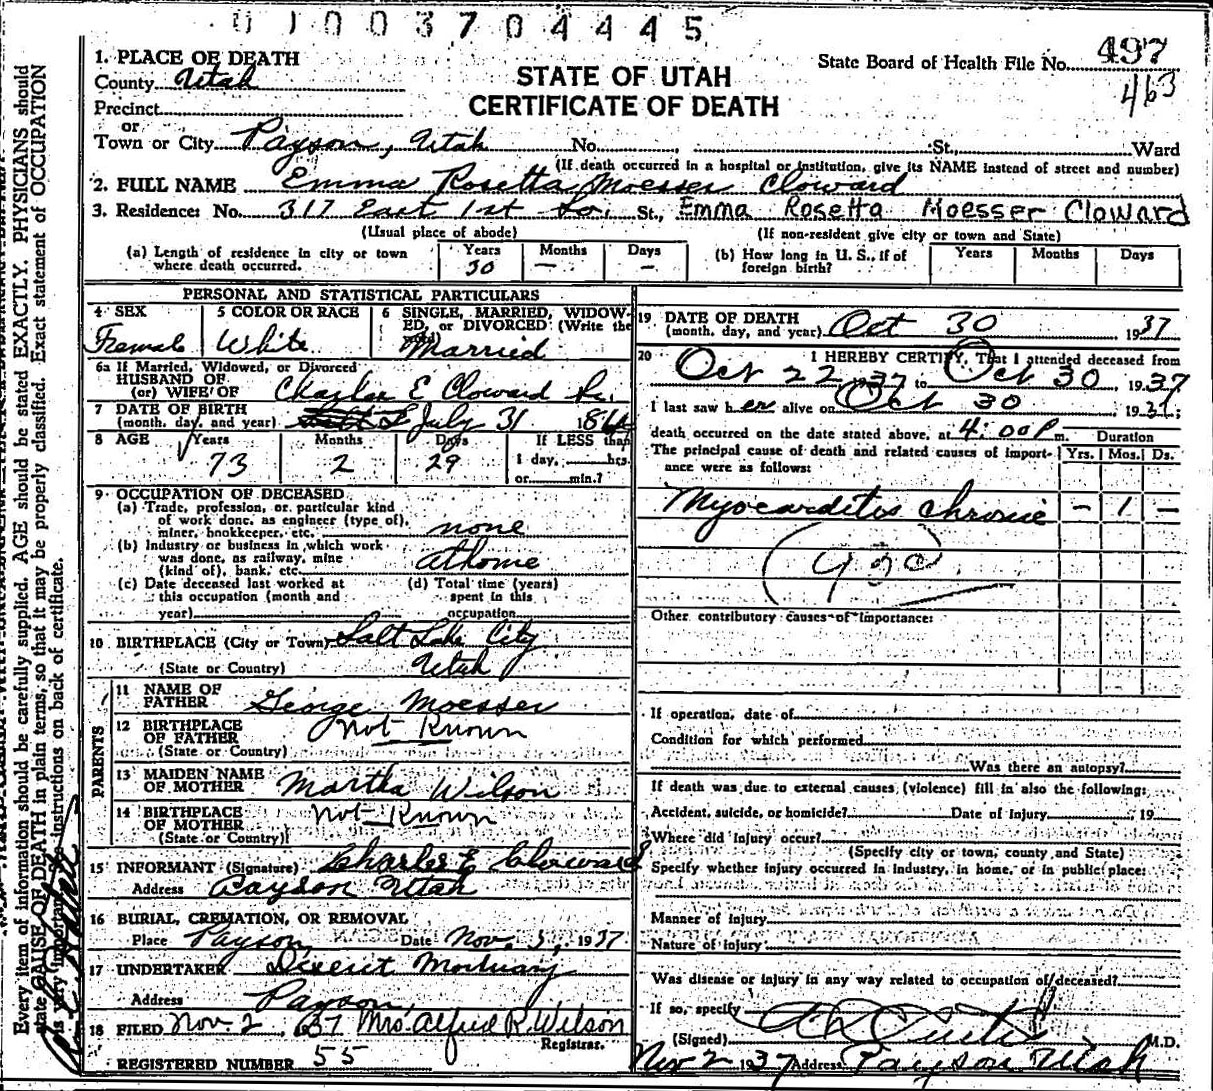 0 1 0 0 3 7 0 4 4 4 5
1. PLACE OF DEATH
County Utah
Precinct
or
Town or City Payson, Utah No. St., Ward
STATE OF UTAH
CERTIFICATE OF DEATH
State Board of Health File No. 497
463
(If death occurred in a hospital or institution, give its NAME instead of street and number)
2. FULL NAME Emma Rosetta Moesser Cloward
3. Residence: No. 317 East 1st So. St., Emma Rosetta Moesser Cloward
(Usual place of abode) (If non-resident give city or town and State)
(a) Length of residence in city or town where death occurred. Years 30 Months — Days —
(b) How long in U. S., if of foreign birth? Years Months Days
PERSONAL AND STATISTICAL PARTICULARS
4 SEX 5 COLOR OR RACE 6 SINGLE, MARRIED, WIDOW-
ED, or DIVORCED (Write the
Female White Married
6a If Married, Widowed, or Divorced
HUSBAND OF
(or) WIFE OF Charles E Cloward Sr.
7 DATE OF BIRTH
(month, day, and year) July 31 1864
8 AGE Years Months Days If LESS than
73 2 29 1 day, hrs.
or min.?
9 OCCUPATION OF DECEASED
(a) Trade, profession, or particular kind
of work done, as engineer (type of),
miner, bookkeeper, etc. none
(b) Industry or business in which work
was done, as railway, mine
(kind of), bank, etc. at home
(c) Date deceased last worked at
this occupation (month and
year)
(d) Total time (years)
spent in this
occupation
10 BIRTHPLACE (City or Town) Salt Lake City
(State or Country) Utah
PARENTS
11 NAME OF
FATHER George Moesser
12 BIRTHPLACE
OF FATHER Not Known
(State or Country)
13 MAIDEN NAME
OF MOTHER Martha Wilson
14 BIRTHPLACE
OF MOTHER Not Known
(State or Country)
15 INFORMANT (Signature) Charles E Cloward
Address Payson Utah
16 BURIAL, CREMATION, OR REMOVAL
Place Payson Date Nov. 1937
17 UNDERTAKER Deseret Mortuary
Address Payson,
18 FILED Nov. 2, 1937 Mrs. Alfred R. Wilson
Registrar.
REGISTERED NUMBER 55
19 DATE OF DEATH
(month, day, and year) Oct 30 1937
20 I HEREBY CERTIFY, That I attended deceased from
Oct 22 37 to Oct 30, 1937
I last saw her alive on Oct 30 1937;
death occurred on the date stated above, at 4:00 P m. Duration
The principal cause of death and related causes of import-
ance were as follows: Yrs. Mos. Ds.
Myocarditis chronic — 1 —
Other contributory causes of importance:
If operation, date of
Condition for which performed
Was there an autopsy?
If death was due to external causes (violence) fill in also the following:
Accident, suicide, or homicide? Date of Injury 19
Where did injury occur?
(Specify city or town, county and State)
Specify whether injury occurred in industry, in home, or in public place:
Manner of injury
Nature of injury
Was disease or injury in any way related to occupation of deceased?
If so, specify
(Signed) M.D.
Nov 2 1937 Address Payson Utah
Every item of information should be carefully supplied. AGE should be stated EXACTLY. PHYSICIANS should
state CAUSE OF DEATH in plain terms, so that it may be properly classified. Exact statement of OCCUPATION
is very important. instructions on back of certificate.